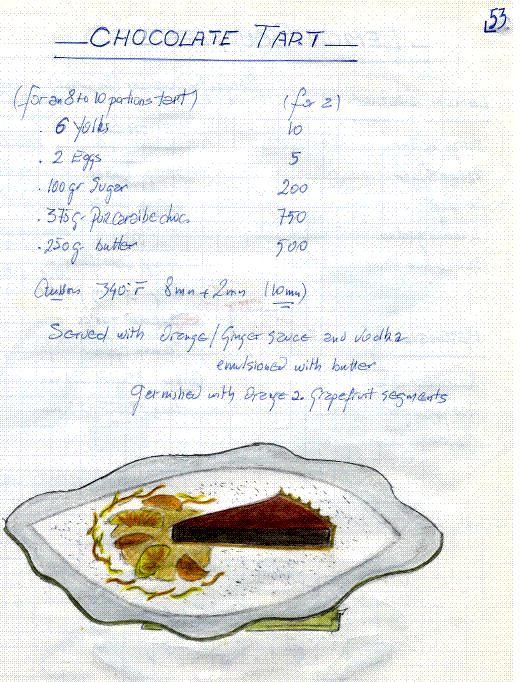 53
CHOCOLATE TART
(for an 8 to 10 portions tart) (for 2)
. 6 Yolks 10
. 2 Eggs 5
. 100 gr Sugar 200
. 375 gr Pur caraibe choc. 750
. 250 g. butter 500
Cuisson 340° F 8mn + 2mn (10mn)
Served with Orange/Ginger sauce and Vodka
emulsioned with butter
Germished with Orange & Grapefruit segments